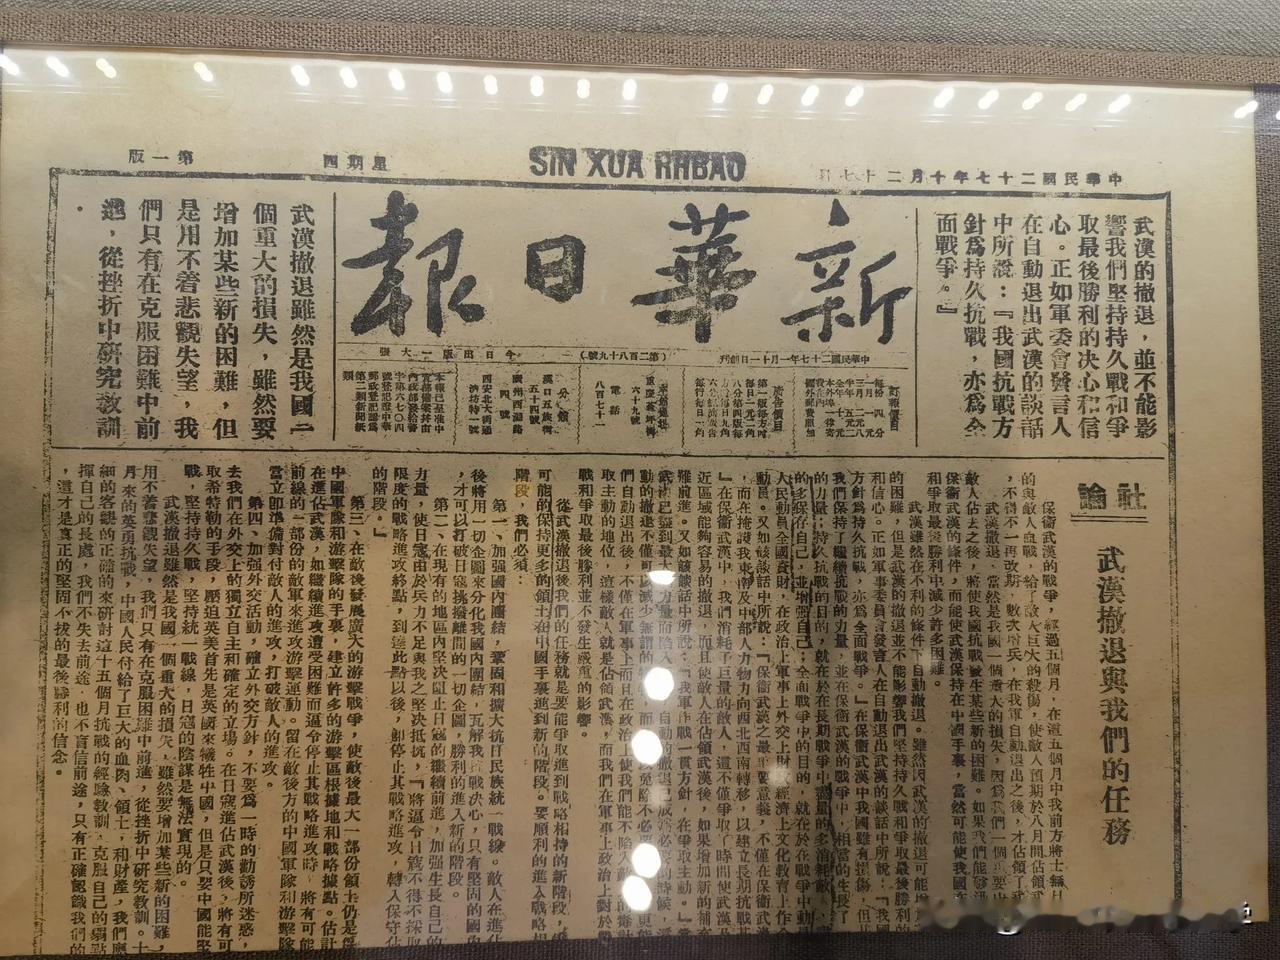 中華民國二十七年十月二十七日
SIN XUA RHBAO
星期四
第一版
武漢的撤退，並不能影
響我們堅持持久戰和爭
取最後勝利的决心和信
心。正如軍委會發言人
在自動退出武漢的談話
中所說：『我國抗戰方
針爲持久抗戰，亦爲全
面戰爭。』
新華日報
中華民國二十七年一月十一日創刊
（第二百八十九號）
今日出版一大張
訂報價目
廣告價目
電話
八百七十一
分館
漢口五族街
五十四號
廣州西湖路
四號
西安北大街通
濟坊特一號
武漢撤退雖然是我國一
個重大的損失，雖然要
增加某些新的困難，但
是用不着悲觀失望，我
們只有在克服困難中前
進，從挫折中硏究敎訓
。
社論
武漢撤退與我們的任務
保衞武漢的戰爭，經過五個月，在這五個月中我前方將士無
的與敵人血戰，給了敵人巨大的殺傷，使敵人預期於八月間佔領武
，不得不一再改期，數次增兵，在我軍自動退出之後，才佔領了我
武漢撤退，當然是我國一個重大的損失，因爲我們
敵人佔去之後，將使我國抗戰發生某些新的困難。如果我們能
保衞武漢的條件，而能使武漢保持在中國手裏，當然可能使我國
和爭取最後勝利中減少許多困難。
武漢雖然在不利的條件下自動撤退。雖然因武漢的撤退可能增
的困難，但是武漢的撤退並不能影響我們堅持持久戰和爭取最後勝利的
和信心。正如軍事委員會發言人在自動退出武漢的談話中所說：『我國
方針爲持久抗戰，亦爲全面戰爭。』在保衞武漢中我國雖有損傷，但
我們保持了繼續抗戰的力量，並在保衞武漢的戰爭中，相當的生長了
的力量；持久抗戰的目的，就在於在長期戰爭中，盡量的多消耗敵人，
的多保存自己，並增强自己；全面戰爭中的目的，就在於在戰爭中動
人民動員全國資財，在政治上軍事上外交上財政經濟上文化敎育上作全
動員。又如該談話中所說：『保衞武漢之最重要意義，不僅在保衞武漢
，而在掩護我東南及中部人力物力向西北西南轉移，以建立長期抗戰基
』在保衞武漢中，我們消耗了巨量的敵人，這不僅爭取了時間使武漢及
近區域能夠容易的撤退，而且使敵人在佔領武漢後，如果增加新的補充
難前進。又如該談話中所說：『我軍作戰一貫方針，在爭取主動。』當
動的撤退不僅可以減少無謂的
們自動退出後，不僅在軍事上而且在政治上使我們能不陷入敵人的
取主動的地位，這樣敵人就是佔領武漢，而我們在軍事上政治上對於堅
戰和爭取最後勝利並不發生嚴重的影響。
從武漢撤退後我們的任務就是要能爭取進到戰略相持的新階段，儘
可能的保持更多的領土在中國手裏進到新的階段。要順利的進入戰略相
階段，我們必須：
第一、加强國內團結，鞏固和擴大抗日民族統一戰線。敵人在進佔
後將用一切企圖來分化我國內團結，瓦解我抗戰决心，只有堅固的國內
，才可以打破日寇挑撥離間的一切企圖，勝利的進入新的階段。
第二、在現有的地區內堅决阻止日寇的繼續前進，加强生長自己的
力量，使日寇由於兵力不足與我之堅决抵抗，『將逼令日寇不得不採取
限度的戰略進攻終點，到達此點以後，卽停止其戰略進攻，轉入保守佔
的階段。』
第三、在敵後發展廣大的游擊戰爭，使敵後最大一部份領土仍是
中國軍隊和游擊隊的手裏，建立許多的游擊區根據地和戰略據點。估計
在進佔武漢，如繼續進攻遭受困難而逼令停止其戰略進攻時，將有可能
前線的一部份的敵軍來進攻游擊運動。留在敵後方的中國軍隊和游擊隊
當立卽準備對付敵人的進攻，打破敵人的進攻。
第四、加强外交活動，確立外交方針，不要爲一時的勸誘所迷惑，
去我們在外交上的獨立自主和確定的立場。在日寇進佔武漢後，將有可
取希特勒的手段，壓迫英美首先是英國來犧牲中國，但是只要中國能堅
戰，堅持持久戰，堅持統一戰線，日寇的陰謀是無法實現的。
武漢撤退雖然是我國一個重大的損失，雖然要增加某些新的困難，
用不着悲觀失望，我們只有在克服困難中前進，從挫折中研究敎訓。十
月來的英勇抗戰，中國人民付給了巨大的血肉、領土、和財產，我們應
細的客觀的正確的來研討這十五個月抗戰的經驗敎訓，克服自己的弱點
揮自己的長處，我們不失去前途，也不盲信前途，只有正確認識我們的
，這才是眞正的堅固不拔的最後勝利的信念。